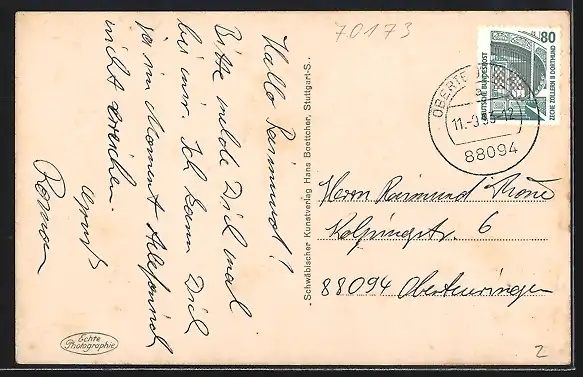 70173
Hallo Raimund!
Bitte melde Dich mal
bei mir. Ich kann Dich
ja im Moment telefonisch
nicht erreichen
Gruß
Roman
Echte
Photographie
Schwäbischer Kunstverlag Hans Boettcher, Stuttgart-S.
80
DEUTSCHE BUNDESPOST
ZECHE ZOLLERN II DORTMUND
OBERTE
88094
Herrn Raimund
Kolpingstr. 6
88094 Oberteuringen
2